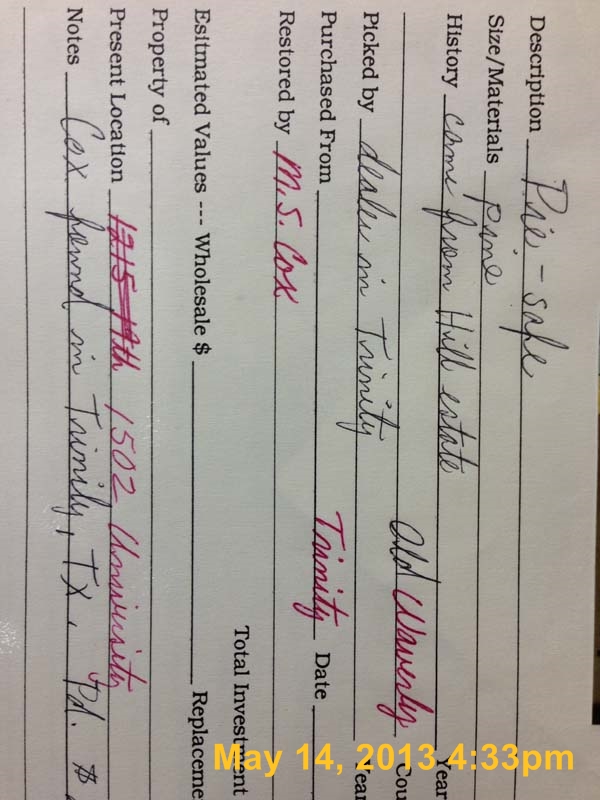 Description Pie-safe
Size/Materials pine Year
History came from Hill estate
Old Waverly Cou
Picked by dealer in Trinity Year
Purchased From Trinity Date
Restored by M.S. Cox
Total Investment
Esitmated Values --- Wholesale $ Replaceme
Property of
Present Location 1215 19th 1502 University
Notes Cox found in Trinity, TX. Pd. $
May 14, 2013 4:33pm